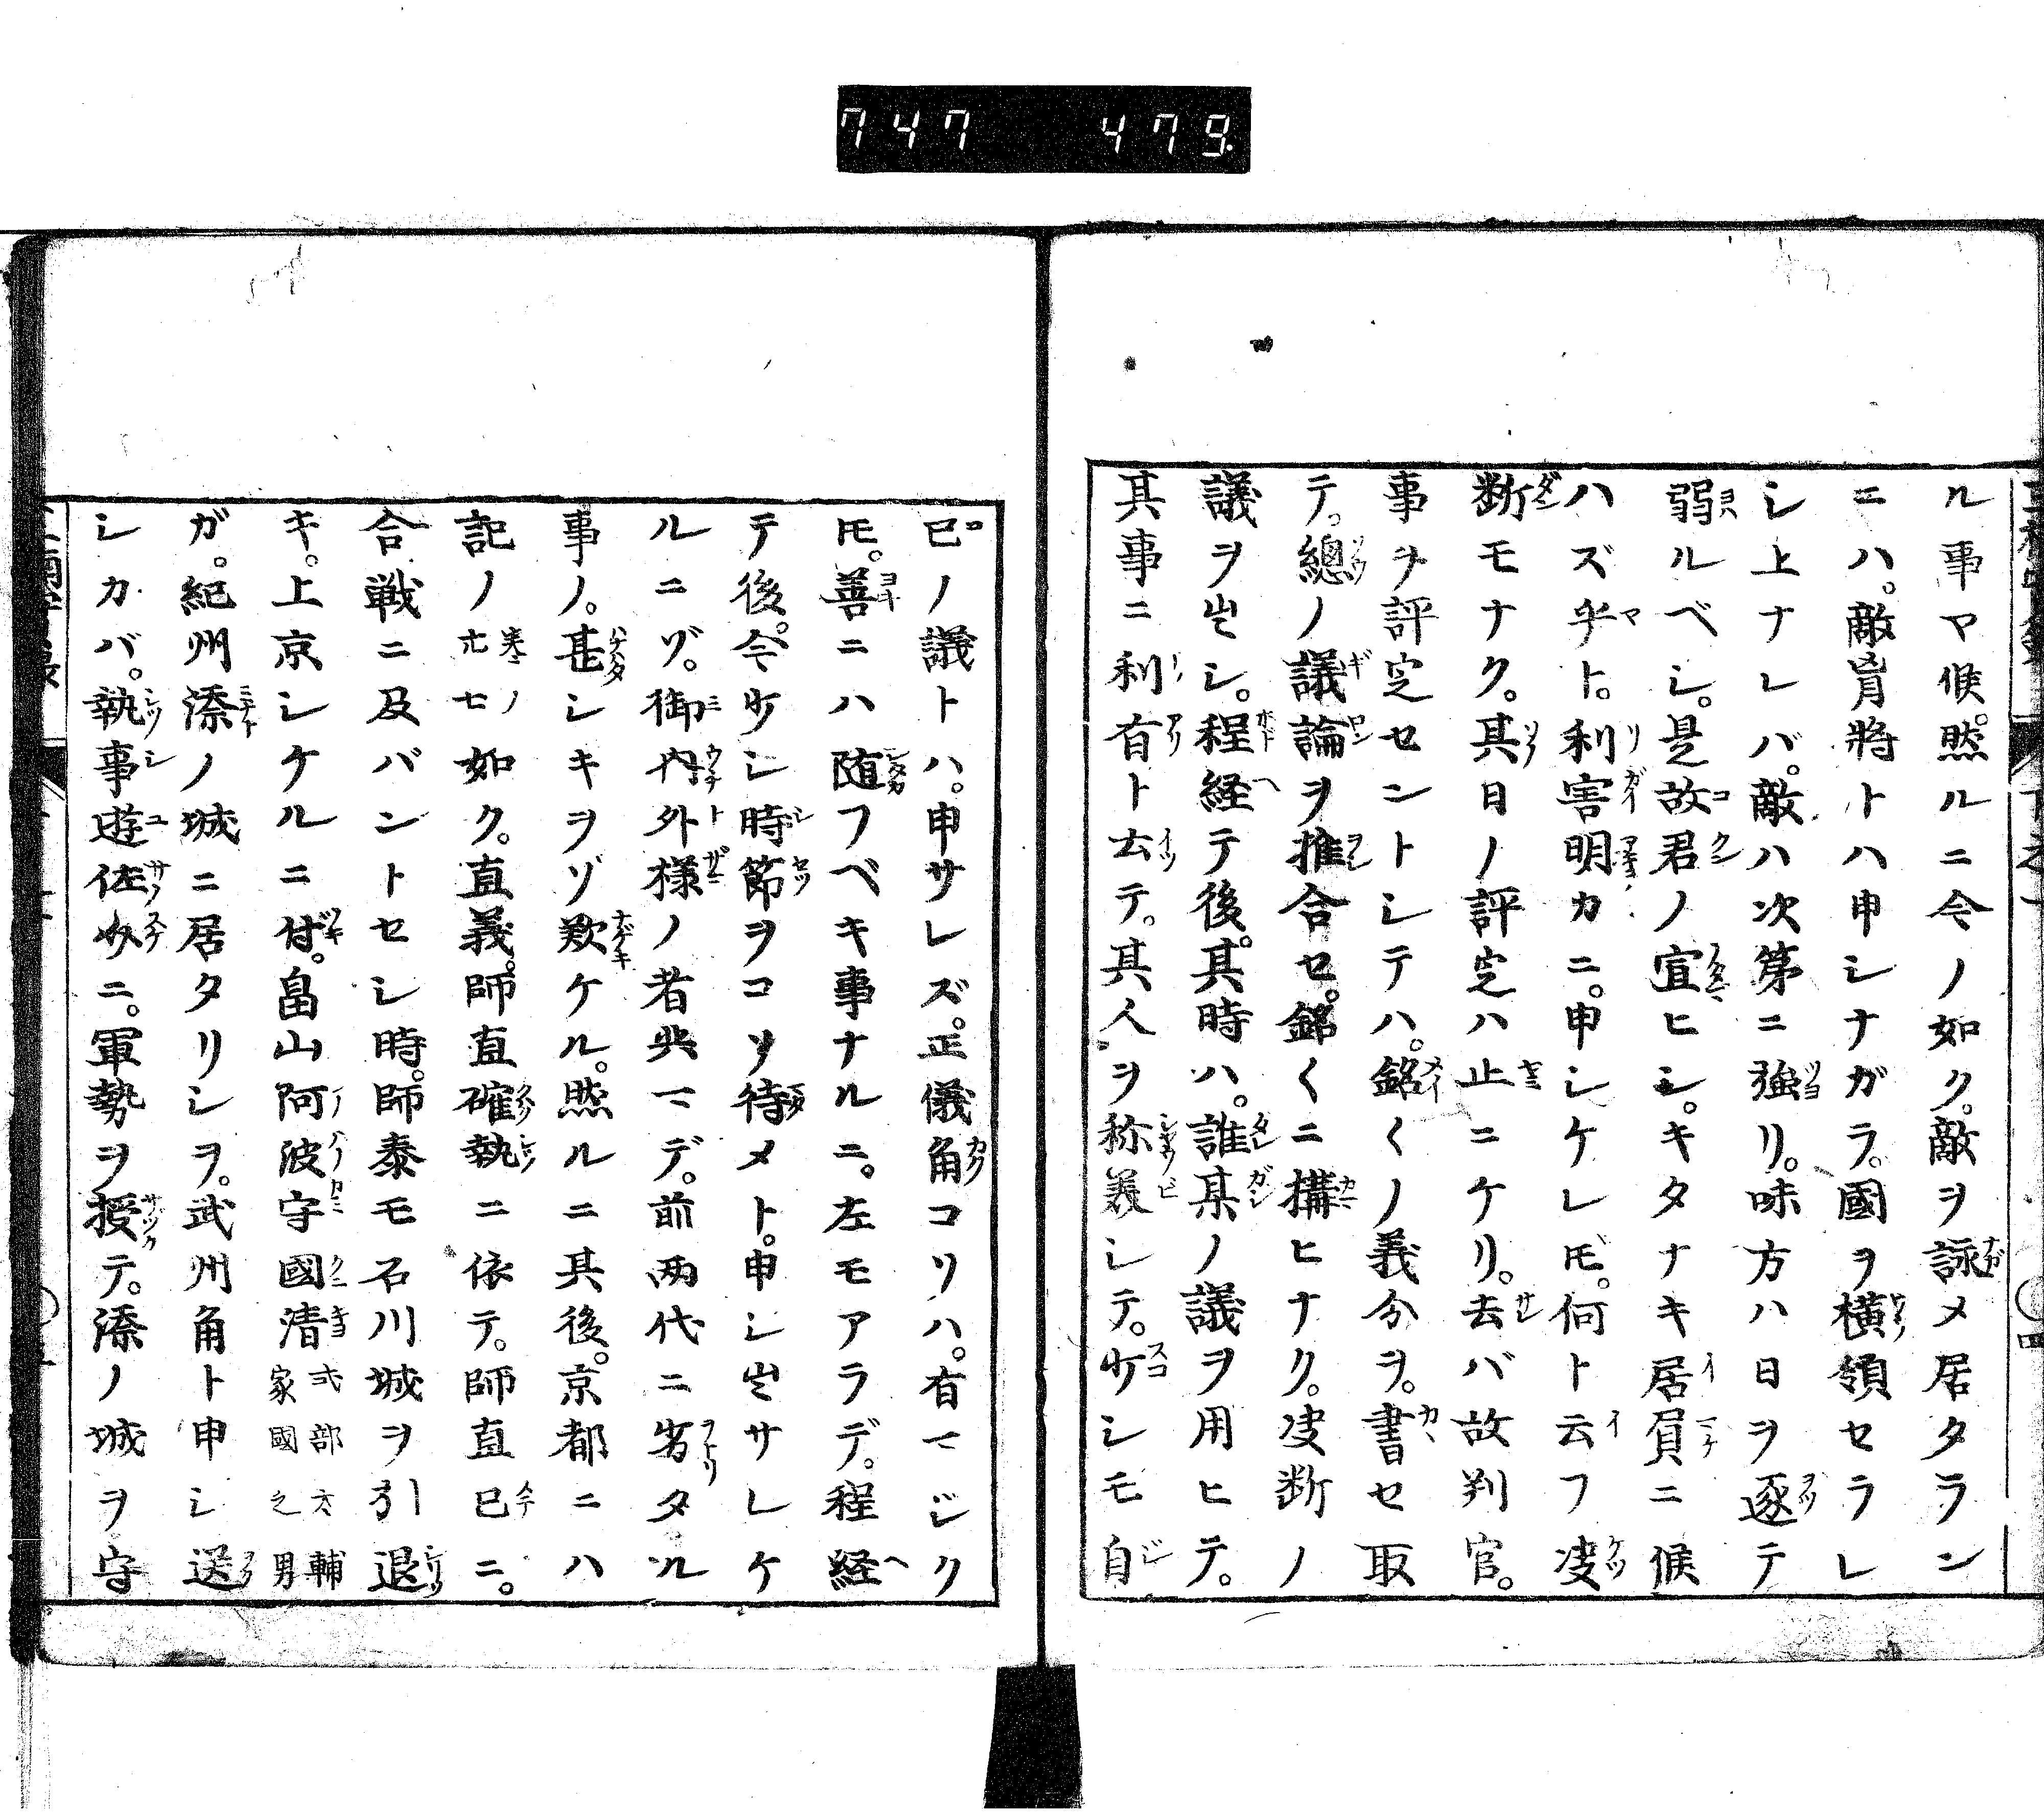 747 479
ル事マ候。然ルニ今ノ如ク。敵ヲ詠メ居タラン
ニハ。敵皆將トハ申シナガラ。國ヲ横領セラレ
シ上ナレバ。敵ハ次第ニ強リ。味方ハ日ヲ逐テ
弱ルベシ。是故君ノ宜ヒシ。キタナキ居屓ニ候
ハズ乎ト。利害明カニ。申シケレ𪜈。何ト云フ决
断モナク。其日ノ評定ハ止ニケリ。去バ故判官。
事ヲ評定セントシテハ。銘〱ノ義分ヲ。書セ取
テ。總ノ議論ヲ推合セ。銘〱ニ構ヒナク。决断ノ
議ヲ出シ。程経テ後。其時ハ。誰某ノ議ヲ用ヒテ。
其事ニ利有ト云テ。其人ヲ称美シテ。少シモ自
已ノ議トハ。申サレズ。正儀角コソハ。有マジク
𪜈。善ニハ随フベキ事ナルニ。左モアラデ。程経
テ後。今少シ時節ヲコソ待メト。申シ出サレケ
ルニゾ。御内外様ノ者共マデ。前両代ニ劣タル
事ノ。甚シキヲゾ歎ケル。然ルニ其後。京都ニハ
記ノ卅七如ク。直義。師直確執ニ依テ。師直已ニ。
合戦ニ及バントセシ時。師泰モ石川城ヲ引退
キ。上京シケルニ付。畠山阿波守國清式部大輔家國之男
ガ。紀州𣷹ノ城ニ居タリシヲ。武州角ト申シ送
シカバ。執事遊佐ニ。軍勢ヲ授テ。𣷹ノ城ヲ守